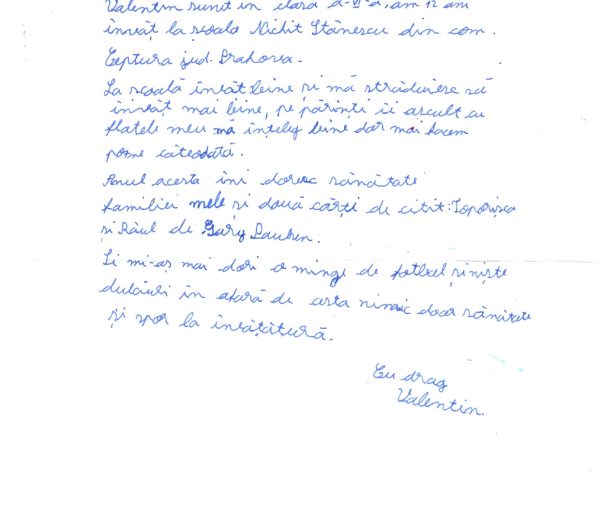 Valentin sunt în clasa a-VI-a, am 12 ani
învăț la școala Nichit Stănescu din com.
Ceptura jud. Prahova.
La școală învăt bine și mă străduiesc să
învăt mai bine, pe părinți îi ascult cu
fratele meu mă înțeleg bine dar mai facem
pozne câteodată.
Anul acesta îmi doresc sănătate
familiei mele și două cărți de citit: Toporișca
și Râul de Gary Paulsen.
Și mi-aș mai dori o minge de fotbal și niște
dulciuri în afară de asta nimic doar sănătate
și spor la învățătură.
Cu drag
Valentin.